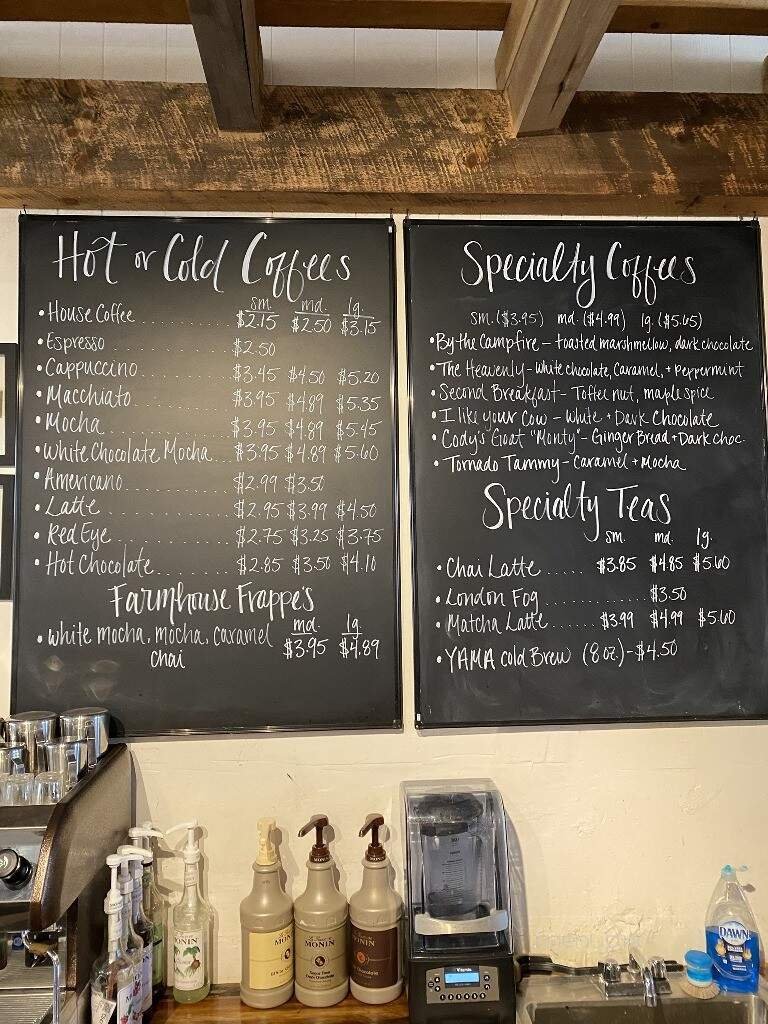 Hot or Cold Coffees
sm. md. lg.
• House Coffee .......... $2.15 $2.50 $3.15
• Espresso .......... $2.50
• Cappuccino .......... $3.45 $4.50 $5.20
• Macchiato .......... $3.95 $4.89 $5.35
• Mocha .......... $3.95 $4.89 $5.45
• White Chocolate Mocha... $3.95 $4.89 $5.60
• Americano .......... $2.99 $3.50
• Latte .......... $2.95 $3.99 $4.50
• Red Eye .......... $2.75 $3.25 $3.75
• Hot Chocolate .......... $2.85 $3.50 $4.10
Farmhouse Frappe's
md. lg.
• white mocha, mocha, caramel $3.95 $4.89
chai
Specialty Coffees
sm. ($3.95) md. ($4.99) lg. ($5.65)
• By the Campfire - toasted marshmellow, dark chocolate
• The Heavenly - White chocolate, Caramel, + Peppermint
• Second Breakfast - Toffee nut, maple spice
• I like your Cow - White + Dark Chocolate
• Cody's Goat "Monty" - Ginger Bread + Dark choc.
• Tornado Tammy - Caramel + Mocha
Specialty Teas
sm. md. lg.
• Chai Latte ...... $3.85 $4.85 $5.60
• London Fog .......... $3.50
• Matcha Latte ...... $3.99 $4.99 $5.60
• YAMA cold Brew (8 oz.) - $4.50
MONIN
MONIN
MONIN
MONIN
Dark Chocolate
Chocolate
DAWN